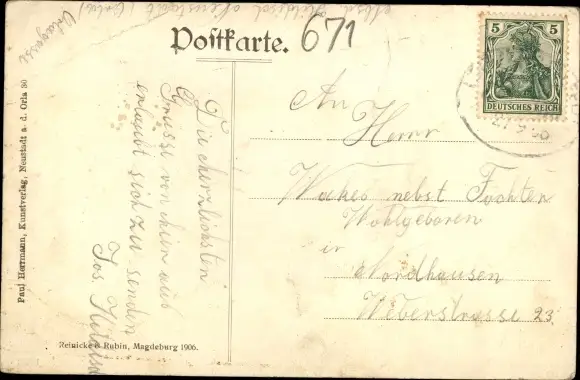 Postkarte.
671
5 5
DEUTSCHES REICH
Die herzlichsten
Grüsse von hier aus
erlaubt sich zu senden
Jos.
An
Herrn
nebst Tochter
Wohlgeboren
in
Nordhausen
Weberstrasse 23.
Paul Herrmann, Kunstverlag, Neustadt a. d. Orla 30
Reinicke & Rubin, Magdeburg 1906.